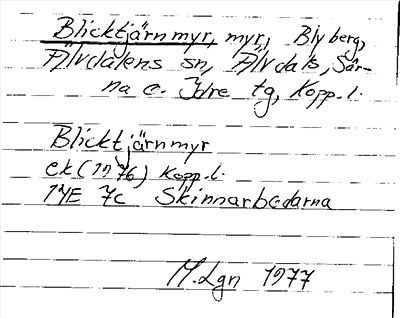 Blicktjärnmyr, myr, Blyberg,
Älvdalens sn, Älvdals, Sär-
na o. Idre tg, Kopp. l.
Blicktjärnmyr
ek (1976) Kopp. l.
14E 7c Skinnarbodarna
M. Lgn 1977